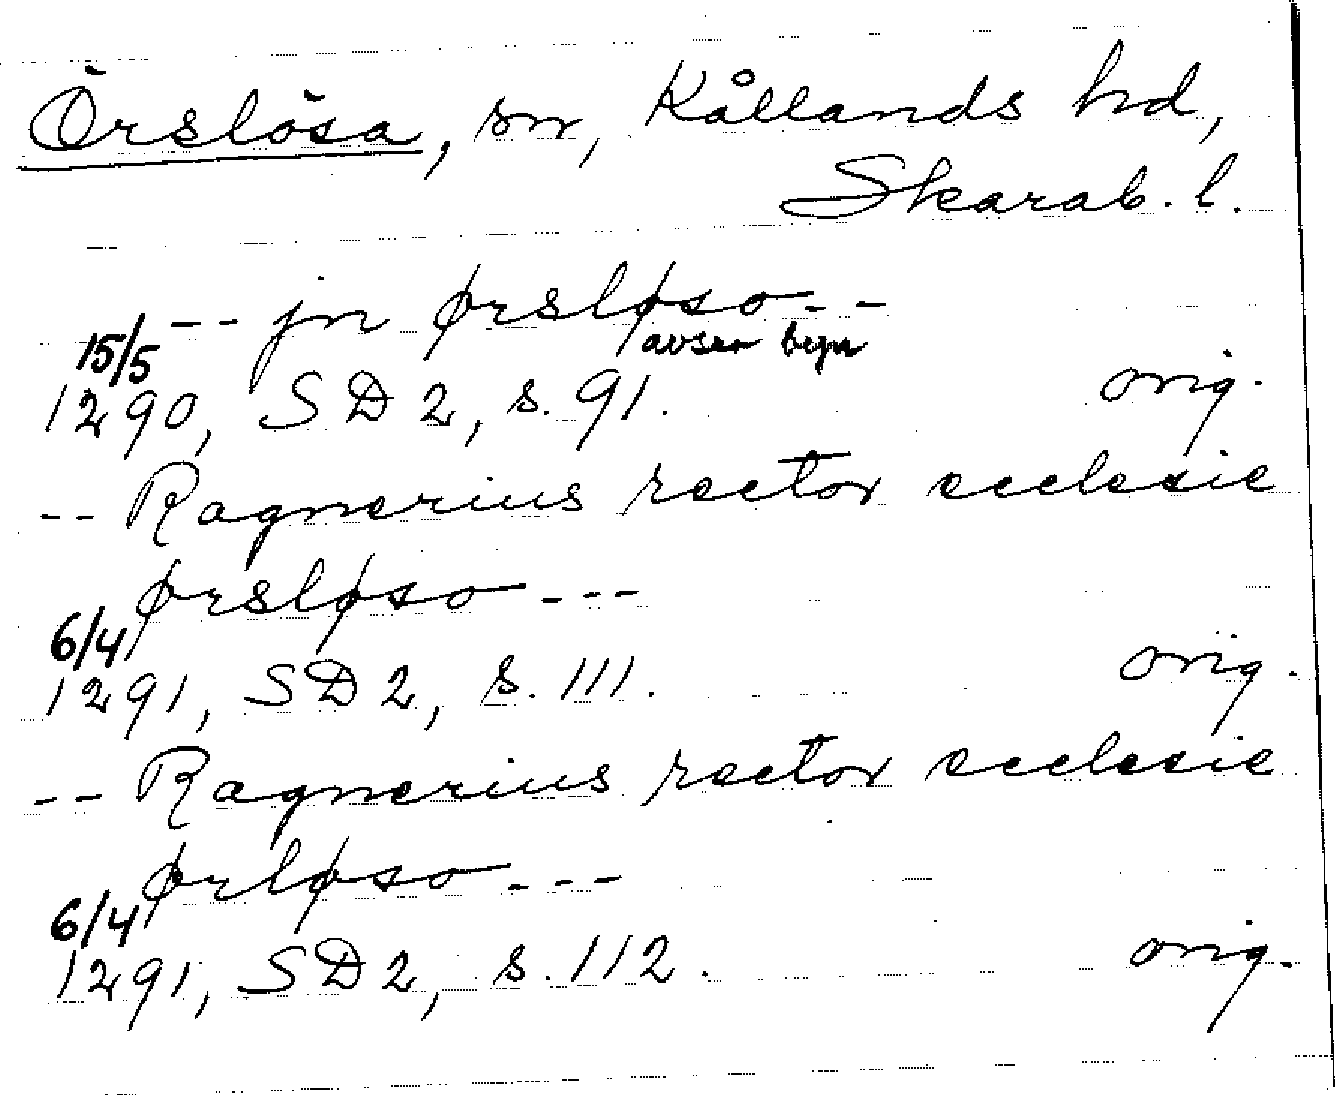 Örslösa, sn, Kållands hd,
Skarab. l.
-- jn ørsløso --
avser byn
15/5
1290, SD 2, s. 91. orig.
-- Ragnerius rector ecclesie
ørsløso ---
6/4
1291, SD 2, s. 111. orig.
-- Ragnerius rector ecclesie
ørløso ---
6/4
1291, SD 2, s. 112. orig.